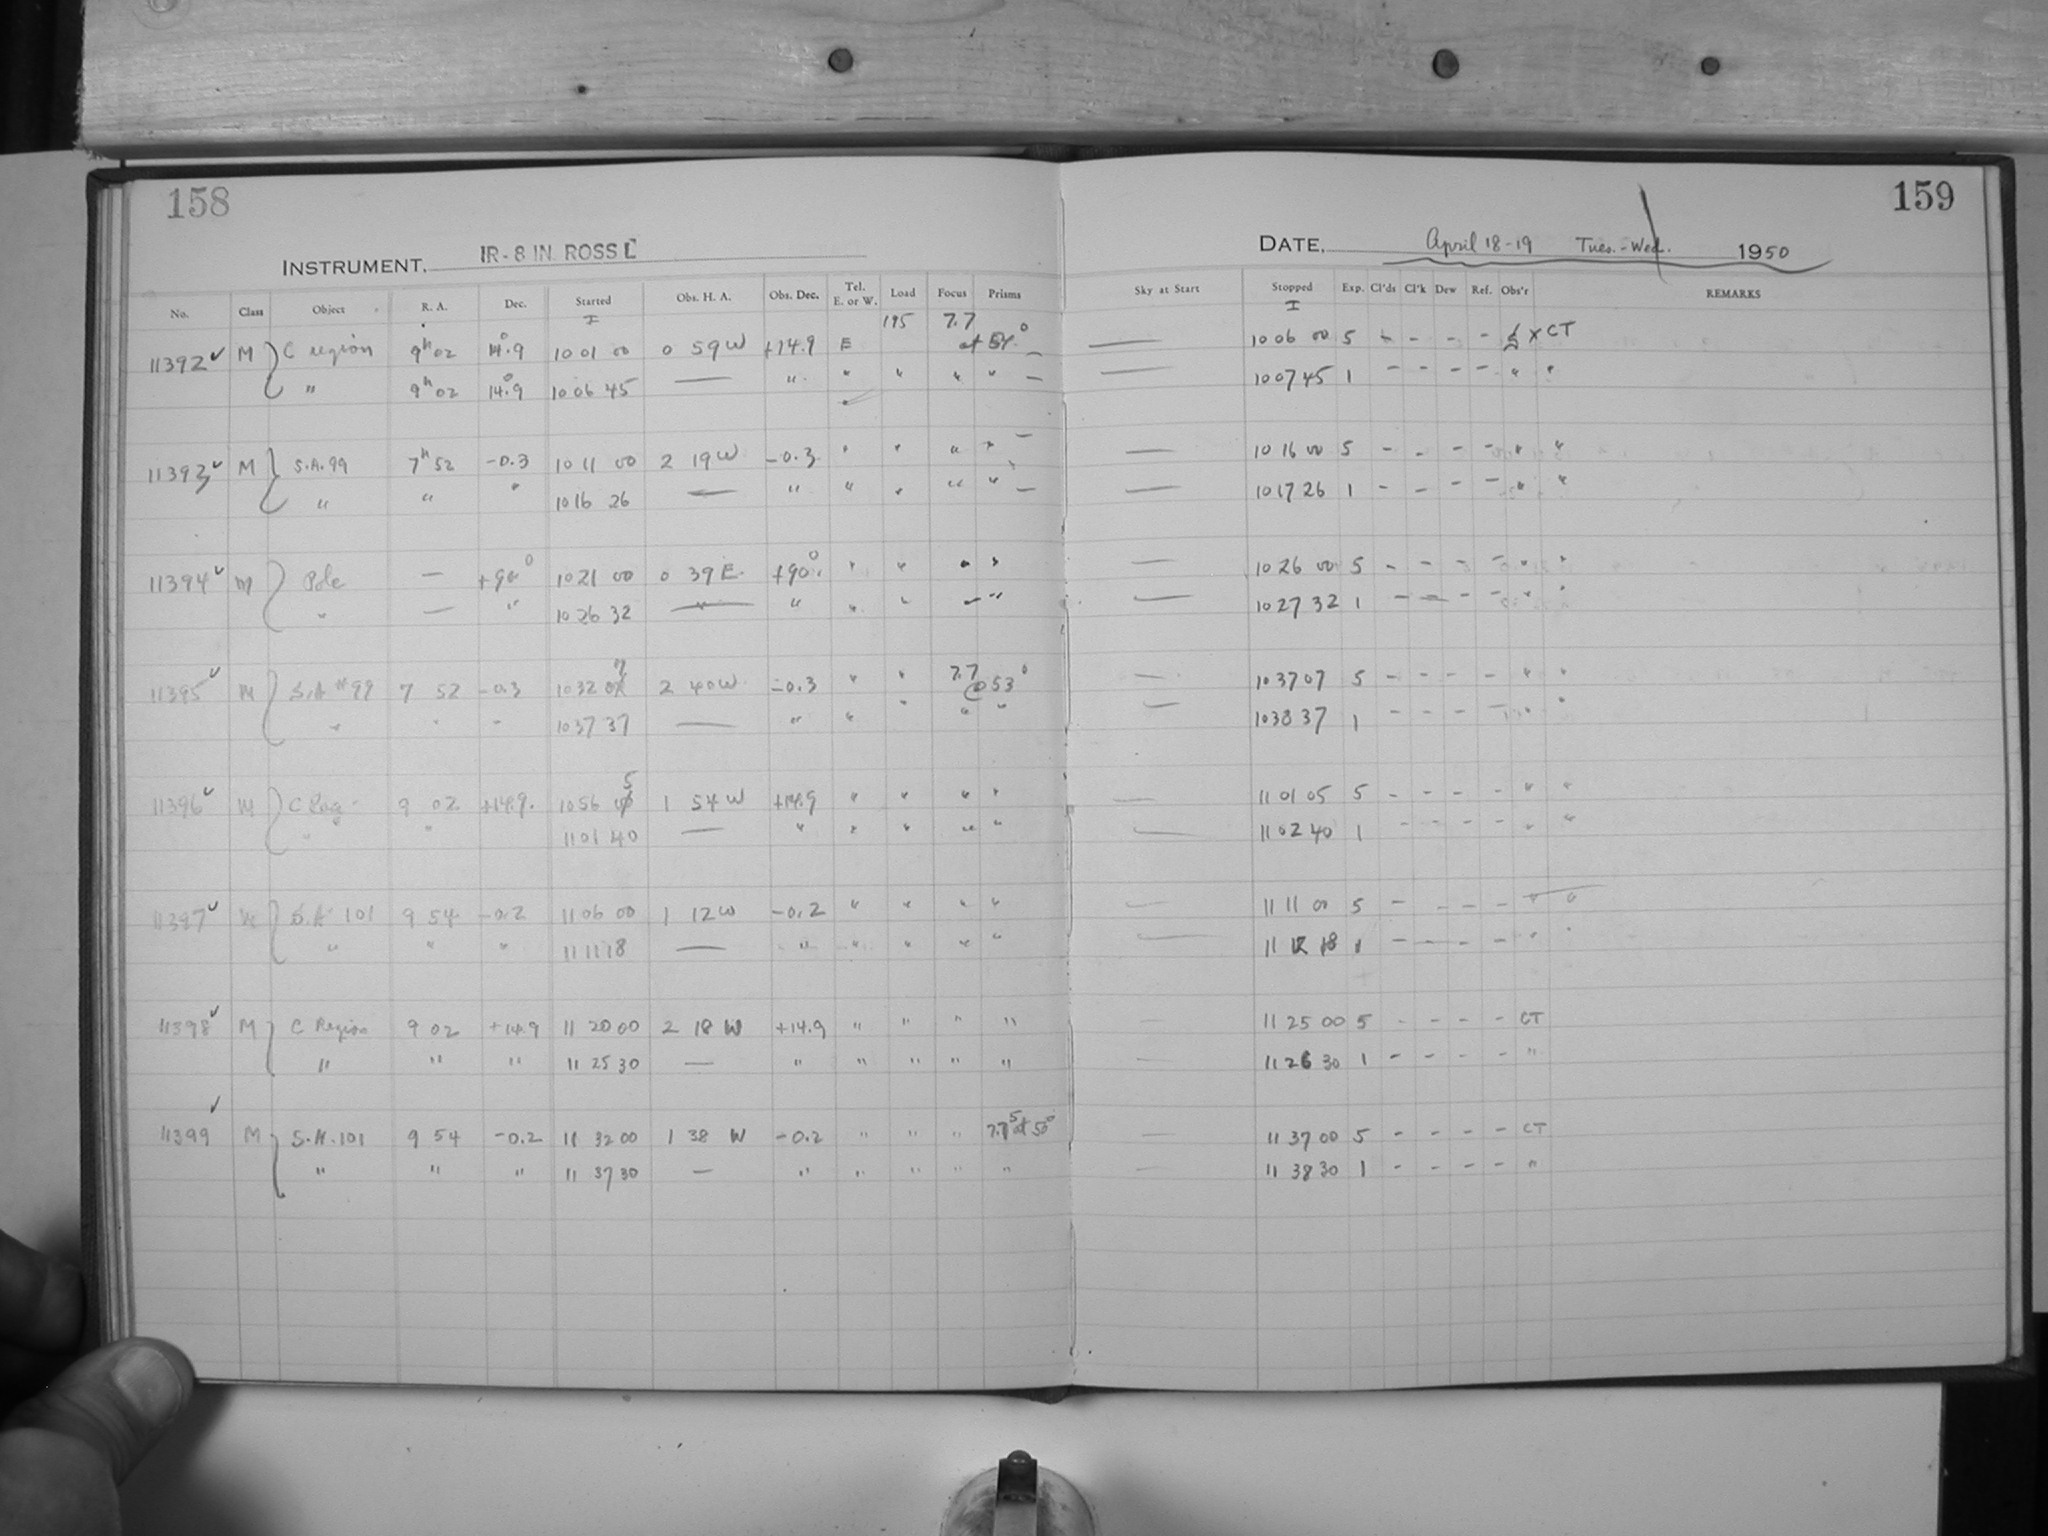 158
INSTRUMENT. IR-8 IN. ROSS E
No. Class Object R. A. Dec. Started Obs. H. A. Obs. Dec. Tel. E. or W. Load Focus Prisms
I 195 7.7
11392 ✓ M C region 9h 02 14.9° 10 01 00 0 59 W +14.9 E at 54° —
" 9h 02 14.9° 10 06 45 — " " " " " —
11393 ✓ M S.A. 99 7h 52 -0.3 10 11 00 2 19 W -0.3 " " " " —
" " " 10 16 26 — " " " " " —
11394 ✓ M Pole — +90° 10 21 00 0 39 E +90° " " " "
" — " 10 26 32 — " " " " "
11395 ✓ M S.A #99 7 52 -0.3 10 32 07 2 40 W -0.3 " " 7.7 @ 53°
" " " 10 37 37 — " " " " "
11396 ✓ M C Reg. 9 02 +14.9 10 56 05 1 54 W +14.9 " " " "
" " " 11 01 40 — " " " " "
11397 ✓ M S.A 101 9 54 -0.2 11 06 00 1 12 W -0.2 " " " "
" " " 11 11 18 — " " " " "
11398 ✓ M C Region 9 02 +14.9 11 20 00 2 18 W +14.9 " " " "
" " " 11 25 30 — " " " " "
11399 ✓ M S.A. 101 9 54 -0.2 11 32 00 1 38 W -0.2 " " " 7.7⁵ at 50°
" " " 11 37 30 — " " " " "
159
DATE. April 18-19 Tues.-Wed. 1950
Sky at Start Stopped Exp. Cl'ds Cl'k Dew Ref. Obs'r REMARKS
I
— 10 06 00 5 - - - - X CT
— 10 07 45 1 - - - - " "
— 10 16 00 5 - - - - " "
— 10 17 26 1 - - - - " "
— 10 26 00 5 - - - - " "
— 10 27 32 1 - - - - " "
— 10 37 07 5 - - - - " "
— 10 38 37 1 - - - - " "
— 11 01 05 5 - - - - " "
— 11 02 40 1 - - - - " "
— 11 11 00 5 - - - - " "
— 11 12 18 1 - - - - " "
— 11 25 00 5 - - - - CT
— 11 26 30 1 - - - - "
— 11 37 00 5 - - - - CT
— 11 38 30 1 - - - - "